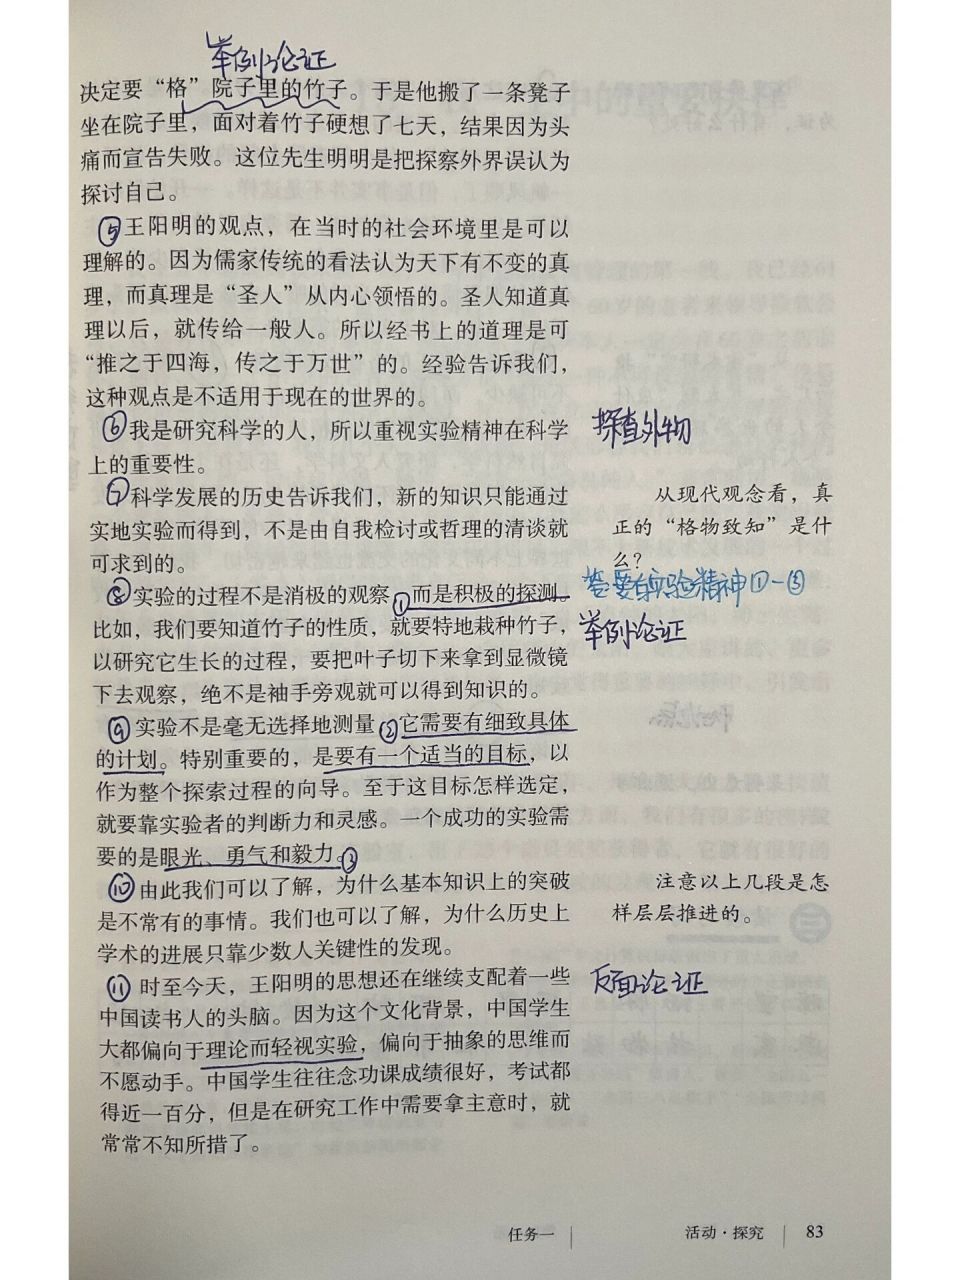 举例论证
决定要“格”院子里的竹子。于是他搬了一条凳子
坐在院子里，面对着竹子硬想了七天，结果因为头
痛而宣告失败。这位先生明明是把探察外界误认为
探讨自己。
⑤王阳明的观点，在当时的社会环境里是可以
理解的。因为儒家传统的看法认为天下有不变的真
理，而真理是“圣人”从内心领悟的。圣人知道真
理以后，就传给一般人。所以经书上的道理是可
“推之于四海，传之于万世”的。经验告诉我们，
这种观点是不适用于现在的世界的。
⑥我是研究科学的人，所以重视实验精神在科学
上的重要性。
探查外物
⑦科学发展的历史告诉我们，新的知识只能通过
实地实验而得到，不是由自我检讨或哲理的清谈就
可求到的。
从现代观念看，真
正的“格物致知”是什
么？
答要有实验精神①-③
举例论证
⑧实验的过程不是消极的观察，①而是积极的探测。
比如，我们要知道竹子的性质，就要特地栽种竹子，
以研究它生长的过程，要把叶子切下来拿到显微镜
下去观察，绝不是袖手旁观就可以得到知识的。
⑨实验不是毫无选择地测量，②它需要有细致具体
的计划。特别重要的，是要有一个适当的目标，以
作为整个探索过程的向导。至于这目标怎样选定，
就要靠实验者的判断力和灵感。一个成功的实验需
要的是眼光、勇气和毅力。③
⑩由此我们可以了解，为什么基本知识上的突破
是不常有的事情。我们也可以了解，为什么历史上
学术的进展只靠少数人关键性的发现。
注意以上几段是怎
样层层推进的。
⑪时至今天，王阳明的思想还在继续支配着一些
中国读书人的头脑。因为这个文化背景，中国学生
大都偏向于理论而轻视实验，偏向于抽象的思维而
不愿动手。中国学生往往念功课成绩很好，考试都
得近一百分，但是在研究工作中需要拿主意时，就
常常不知所措了。
反面论证
任务一
活动·探究
83